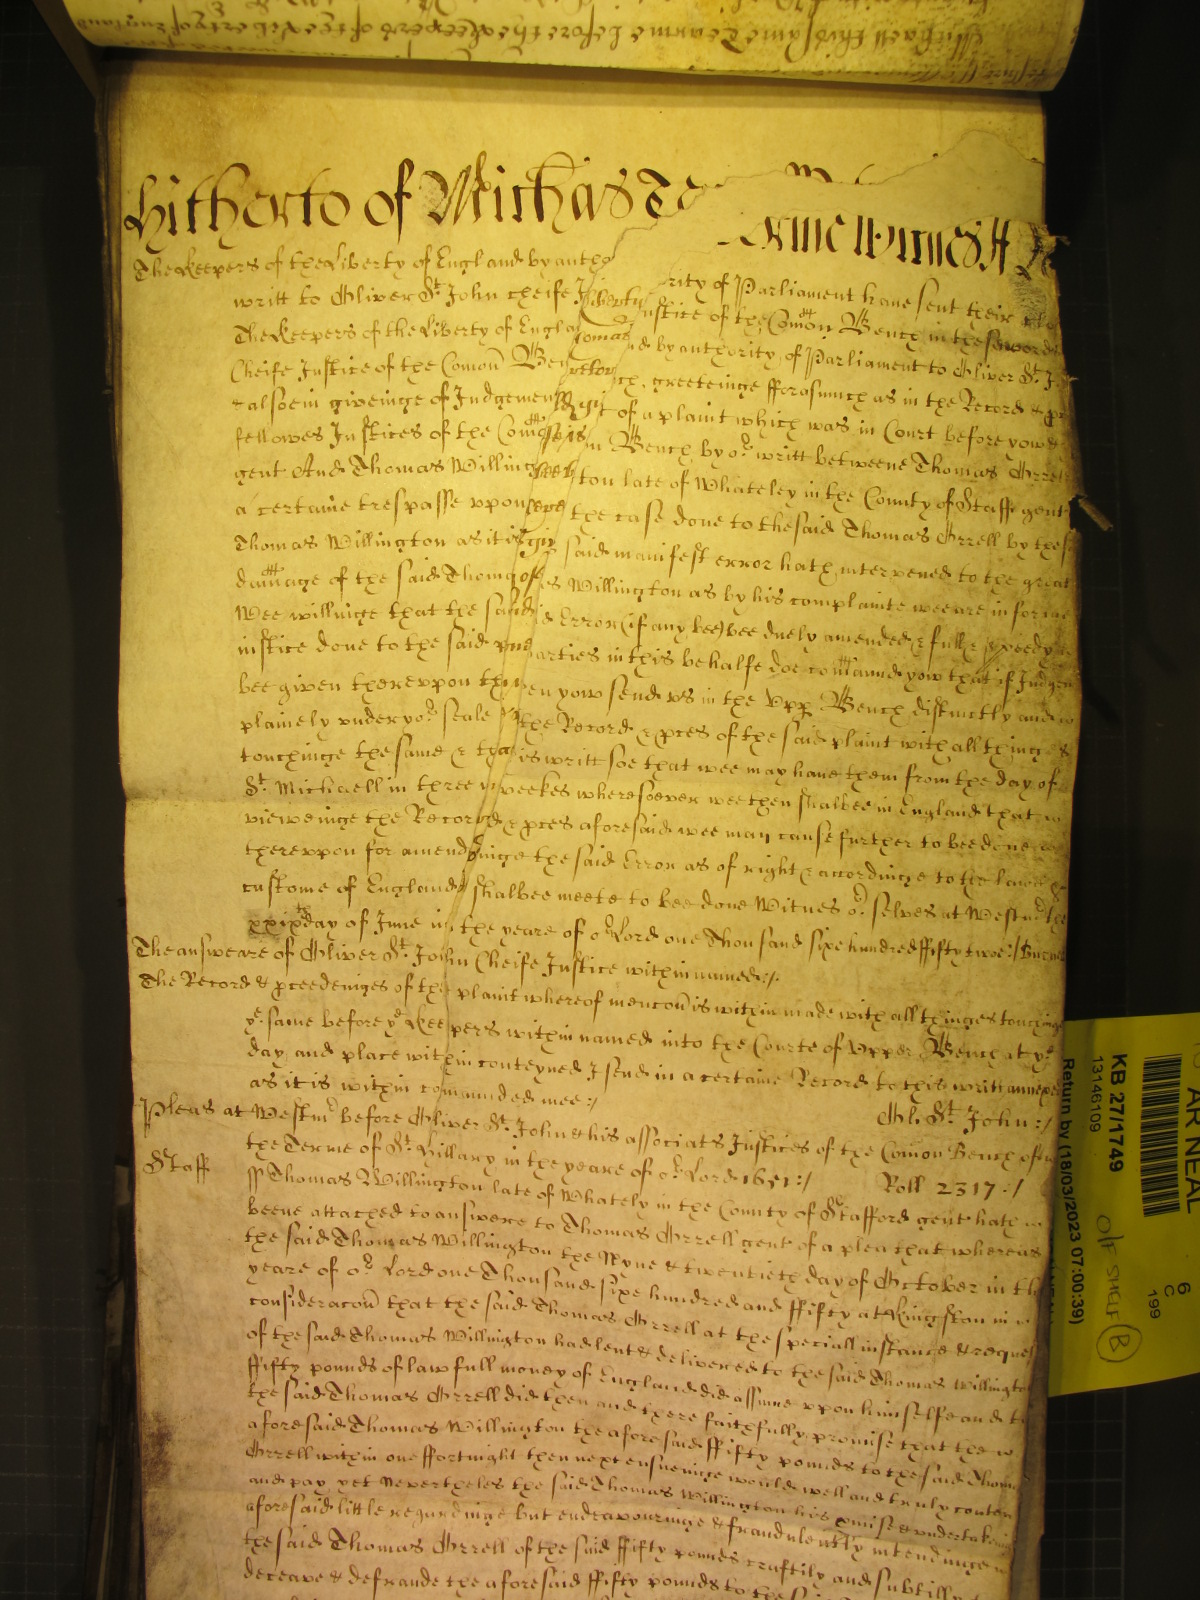 Hitherto of Michas Te
erme Wittnes H
The Keepers of the Liberty of England by authority of Parliament have sent their
writt to Oliver St. John cheife Justice of the Comon Bench in these words
The Keepers of the Liberty of England by authority of Parliament to Oliver St. J
Cheife Justice of the Comon Bench greeteinge fforasmuch as in the Record &
& alsoe in giveinge of Judgement of a plaint which was in Court before yow &
fellowes Justices of the Comon Bench by or writt betweene Thomas Orrell
gent And Thomas Willington late of Whateley in the County of Staff gent
a certaine trespasse vppon the case done to the said Thomas Orrell by the s
Thomas Willington as it is said manifest error hath intervened to the great
damage of the said Thomas Willington as by his complainte wee are informe
Wee willinge that the said Error (if any bee) bee duely amended & full & speedy
iustice done to the said parties in this behalfe doe comaund yow that if Judgem
bee given therevppon then yow send vs in the Vpp Bench distinctly and
plainely vnder yor seale the Record & pces of the said plaint with all thinges
touchinge the same & this writt soe that wee may have them from the day of
St. Michaell in three weekes wheresoever wee then shalbee in England that
vieweinge the Record & pces aforesaid wee may cause further to bee done
therevppon for amendinge the said Error as of right & accordinge to the lawe &
custome of England shalbee meete to bee done Witnes or selves at Westmr the
xxixth day of June in the yeare of or Lord one Thousand sixe hundred ffifty two:/
The answeare of Oliver St. John Cheife Justice within named:/.
The Record & pceedeinges of the plaint whereof mencon is within made with all thinges touchinge
ye same before ye Keepers within named into the Courte of Vpper Bench at ye
day and place within conteyned I send in a certaine Record to this writt annexed
as it is within comaunded mee:/
Ol: St. John:/
Pleas at Westmr before Oliver St. John & his associats Justices of the Comon Bench of
the Terme of St. Hillary in the yeare of or Lord 1651:/ Roll 2317:/
Staff
ss Thomas Willington late of Whately in the County of Stafford gent hath
beene attached to answere to Thomas Orrell gent of a plea that whereas
the said Thomas Willington the Nyne & twentieth day of October in th
yeare of or Lord one Thousand sixe hundred and ffifty at Kingston in
consideracon that the said Thomas Orrell at the speciall instance & reques
of the said Thomas Willington had lent & delivered to the said Thomas Willingto
ffifty pounds of lawfull money of England did assume vppon himselfe and t
the said Thomas Orrell did then and there faithfully promise that the
aforesaid Thomas Willington the aforesaid ffifty pounds to the said Thom
Orrell within one ffortnight then next ensueinge would well and truly conten
and pay yet Nevertheles the said Thomas Willington his pmise & vndertakin
aforesaid little regardinge but endeavouringe & fraudulently intendinge
the said Thomas Orrell of the said ffifty pounds craftily and subtilly
deceave & defraude the aforesaid ffifty pounds to the
AR NEAL
KB 27/1749
13146109
Return by (18/03/2023 07:00:39)
6
C
199
O/F SHELF B